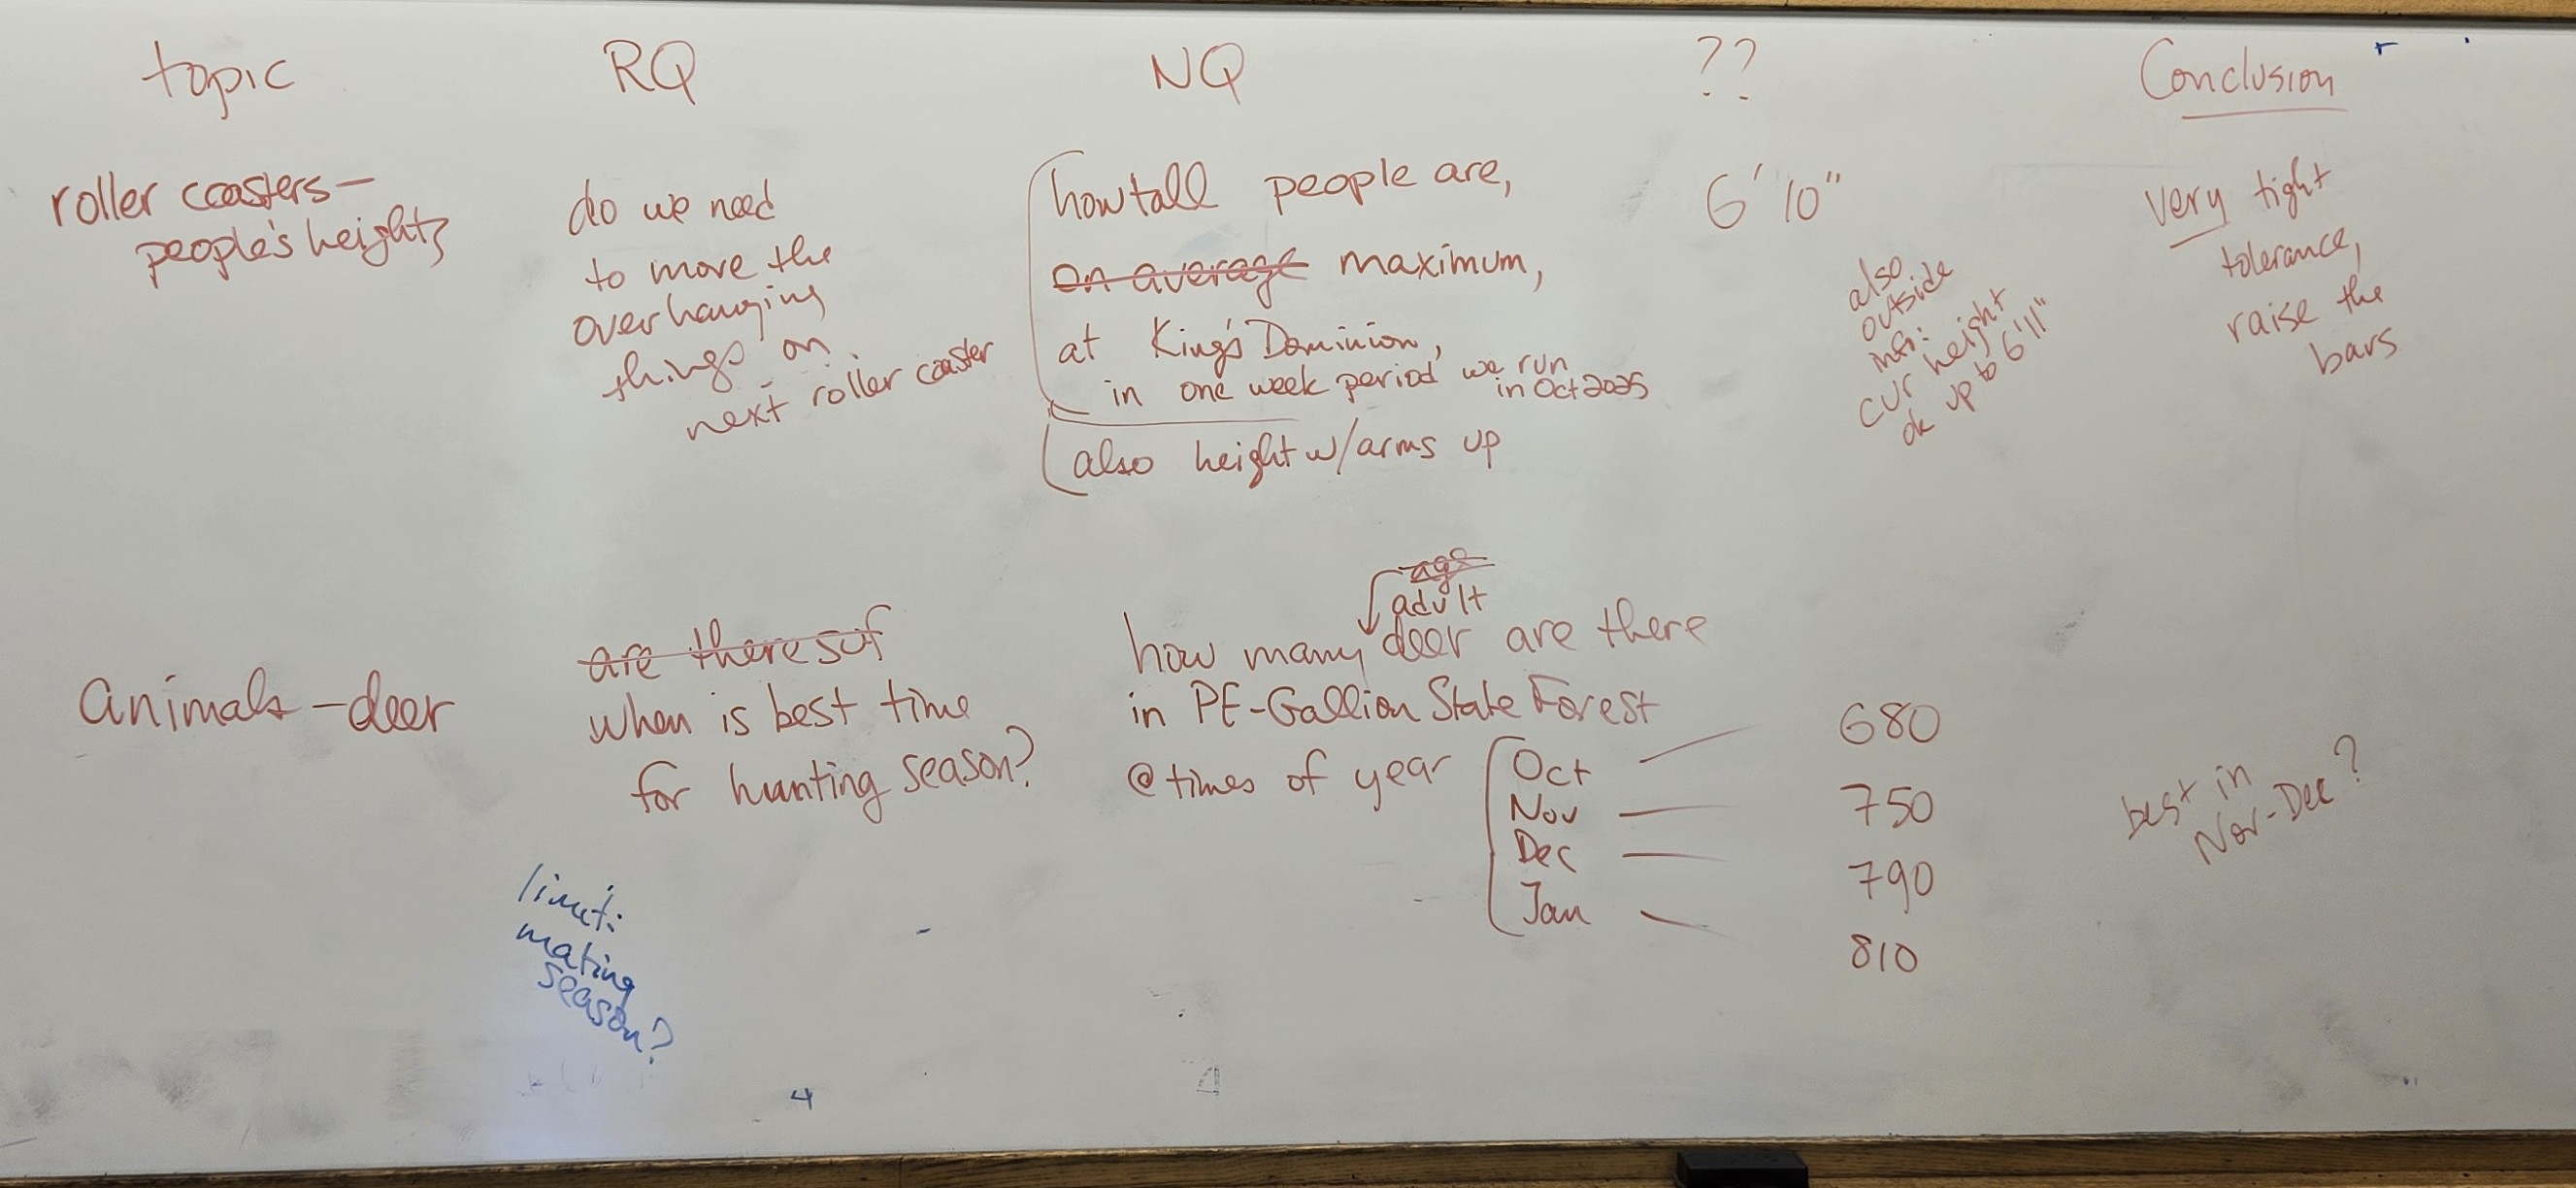 topic RQ NQ ?? Conclusion
roller coasters—
people's heights
do we need
to move the
overhanging
things on
next roller coaster
how tall people are,
on average maximum,
at King's Dominion,
in one week period we run
in Oct 2025
also height w/arms up
6'10"
also
outside
info:
cur height
ok up to 6'11"
very tight
tolerance,
raise the
bars
animals - deer
are there suf
when is best time
for hunting season?
limit:
mating
season?
age
adult
how many deer are there
in PE-Gallion State Forest
@ times of year
Oct
Nov
Dec
Jan
680
750
790
810
best in
Nov-Dec?
4